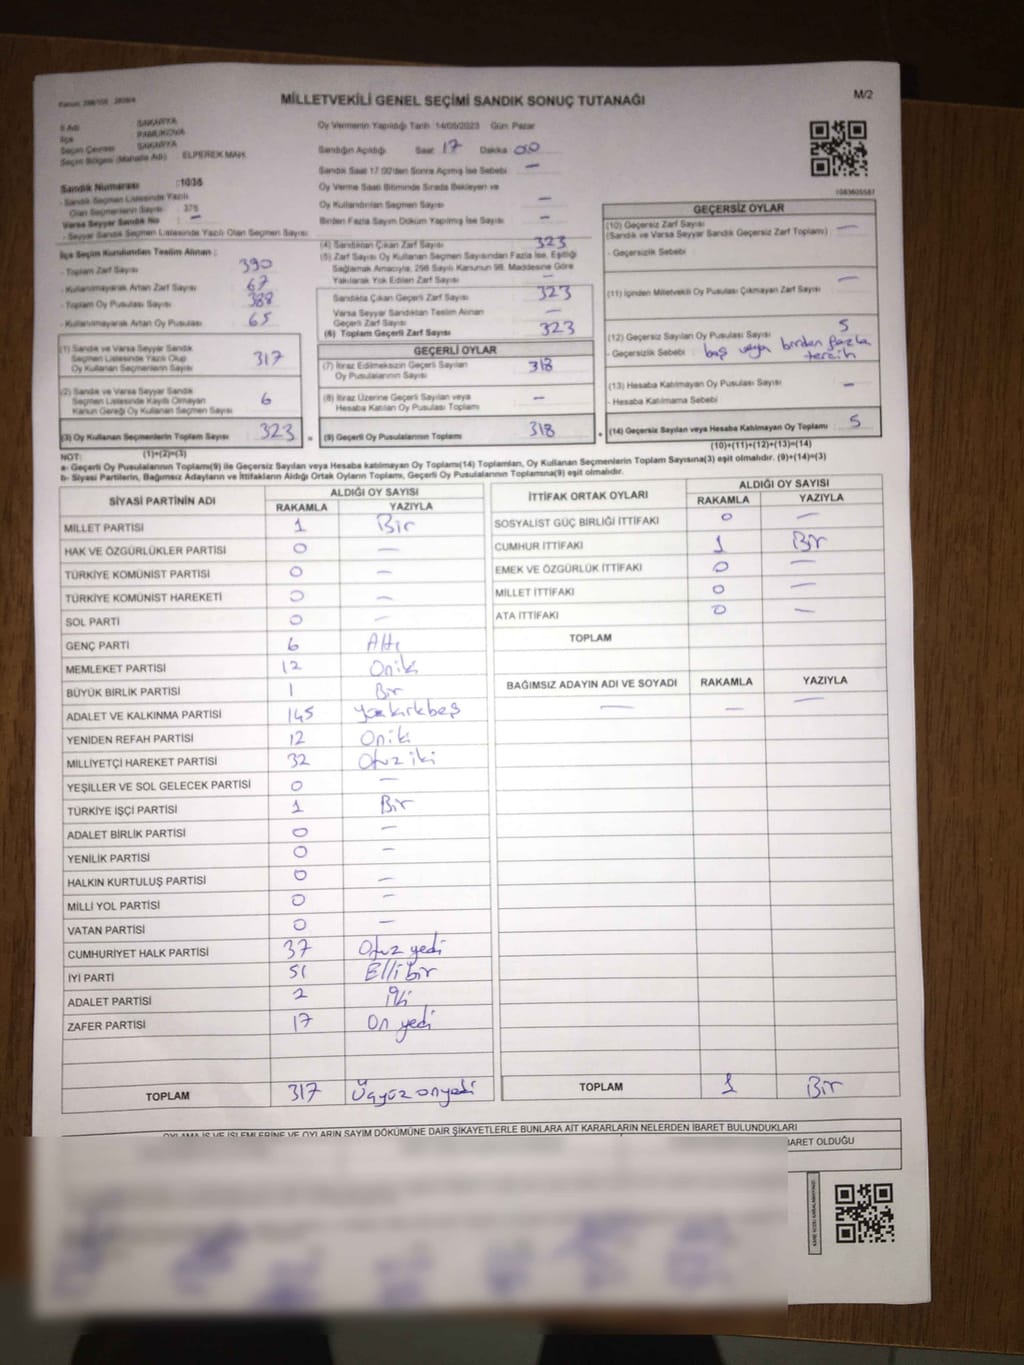 MİLLETVEKİLİ GENEL SEÇİMİ SANDIK SONUÇ TUTANAĞI
M/2
İl Adı : SAKARYA
İlçe : PAMUKOVA
Seçim Çevresi : SAKARYA
Seçim Bölgesi (Mahalle Adı) : ELPEREK MAH.
Sandık Numarası : 1035
- Sandık Seçmen Listesinde Yazılı
Olan Seçmenlerin Sayısı : 375
Varsa Seyyar Sandık No : —
- Seyyar Sandık Seçmen Listesinde Yazılı Olan Seçmen Sayısı:
İlçe Seçim Kurulundan Teslim Alınan ;
- Toplam Zarf Sayısı 390
- Kullanılmayarak Artan Zarf Sayısı 67
- Toplam Oy Pusulası Sayısı 388
- Kullanılmayarak Artan Oy Pusulası 65
(1) Sandık ve Varsa Seyyar Sandık
Seçmen Listesinde Yazılı Olup
Oy Kullanan Seçmenlerin Sayısı 317
(2) Sandık ve Varsa Seyyar Sandık
Seçmen Listesinde Kayıtlı Olmayan
Kanun Gereği Oy Kullanan Seçmen Sayısı 6
(3) Oy Kullanan Seçmenlerin Toplam Sayısı 323
Oy Vermenin Yapıldığı Tarih :14/05/2023 Gün: Pazar
Sandığın Açıldığı Saat 17 Dakika 00
Sandık Saat 17:00'den Sonra Açılmış İse Sebebi —
Oy Verme Saati Bitiminde Sırada Bekleyen ve
Oy Kullandırılan Seçmen Sayısı —
Birden Fazla Sayım Döküm Yapılmış İse Sayısı —
(4) Sandıktan Çıkan Zarf Sayısı 323
(5) Zarf Sayısı Oy Kullanan Seçmen Sayısından Fazla İse, Eşitliği
Sağlamak Amacıyla, 298 Sayılı Kanunun 98. Maddesine Göre
Yakılarak Yok Edilen Zarf Sayısı —
Sandıkta Çıkan Geçerli Zarf Sayısı 323
Varsa Seyyar Sandıktan Teslim Alınan
Geçerli Zarf Sayısı —
(6) Toplam Geçerli Zarf Sayısı 323
GEÇERLİ OYLAR
(7) İtiraz Edilmeksizin Geçerli Sayılan
Oy Pusulalarının Sayısı 318
(8) İtiraz Üzerine Geçerli Sayılan veya
Hesaba Katılan Oy Pusulası Toplamı —
(9) Geçerli Oy Pusulalarının Toplamı 318
GEÇERSİZ OYLAR
(10) Geçersiz Zarf Sayısı
(Sandık ve Varsa Seyyar Sandık Geçersiz Zarf Toplamı) —
- Geçersizlik Sebebi
(11) İçinden Milletvekili Oy Pusulası Çıkmayan Zarf Sayısı —
(12) Geçersiz Sayılan Oy Pusulası Sayısı 5
- Geçersizlik Sebebi : boş veya birden fazla
tercih
(13) Hesaba Katılmayan Oy Pusulası Sayısı —
- Hesaba Katılmama Sebebi
(14) Geçersiz Sayılan veya Hesaba Katılmayan Oy Toplamı 5
NOT: (1)+(2)=(3)
(10)+(11)+(12)+(13)=(14)
a- Geçerli Oy Pusulalarının Toplamı(9) ile Geçersiz Sayılan veya Hesaba katılmayan Oy Toplamı(14) Toplamları, Oy Kullanan Seçmenlerin Toplam Sayısına(3) eşit olmalıdır. (9)+(14)=(3)
b- Siyasi Partilerin, Bağımsız Adayların ve İttifakların Aldığı Ortak Oyların Toplamı, Geçerli Oy Pusulalarının Toplamına(9) eşit olmalıdır.
SİYASİ PARTİNİN ADI ALDIĞI OY SAYISI
RAKAMLA YAZIYLA
MİLLET PARTİSİ 1 Bir
HAK VE ÖZGÜRLÜKLER PARTİSİ 0 —
TÜRKİYE KOMÜNİST PARTİSİ 0 —
TÜRKİYE KOMÜNİST HAREKETİ 0 —
SOL PARTİ 0 —
GENÇ PARTİ 6 Altı
MEMLEKET PARTİSİ 12 Oniki
BÜYÜK BİRLİK PARTİSİ 1 Bir
ADALET VE KALKINMA PARTİSİ 145 yüzkırkbeş
YENİDEN REFAH PARTİSİ 12 Oniki
MİLLİYETÇİ HAREKET PARTİSİ 32 Otuz iki
YEŞİLLER VE SOL GELECEK PARTİSİ 0 —
TÜRKİYE İŞÇİ PARTİSİ 1 Bir
ADALET BİRLİK PARTİSİ 0 —
YENİLİK PARTİSİ 0 —
HALKIN KURTULUŞ PARTİSİ 0 —
MİLLİ YOL PARTİSİ 0 —
VATAN PARTİSİ 0 —
CUMHURİYET HALK PARTİSİ 37 Otuz yedi
İYİ PARTİ 51 Elli bir
ADALET PARTİSİ 2 İki
ZAFER PARTİSİ 17 On yedi
TOPLAM 317 Üçyüz onyedi
İTTİFAK ORTAK OYLARI ALDIĞI OY SAYISI
RAKAMLA YAZIYLA
SOSYALİST GÜÇ BİRLİĞİ İTTİFAKI 0 —
CUMHUR İTTİFAKI 1 Bir
EMEK VE ÖZGÜRLÜK İTTİFAKI 0 —
MİLLET İTTİFAKI 0 —
ATA İTTİFAKI 0 —
TOPLAM
BAĞIMSIZ ADAYIN ADI VE SOYADI RAKAMLA YAZIYLA
— — —
TOPLAM 1 Bir
OYLAMA İŞ VE İŞLEMLERİNE VE OYLARIN SAYIM DÖKÜMÜNE DAİR ŞİKAYETLERLE BUNLARA AİT KARARLARIN NELERDEN İBARET BULUNDUKLARI
BARET OLDUĞU